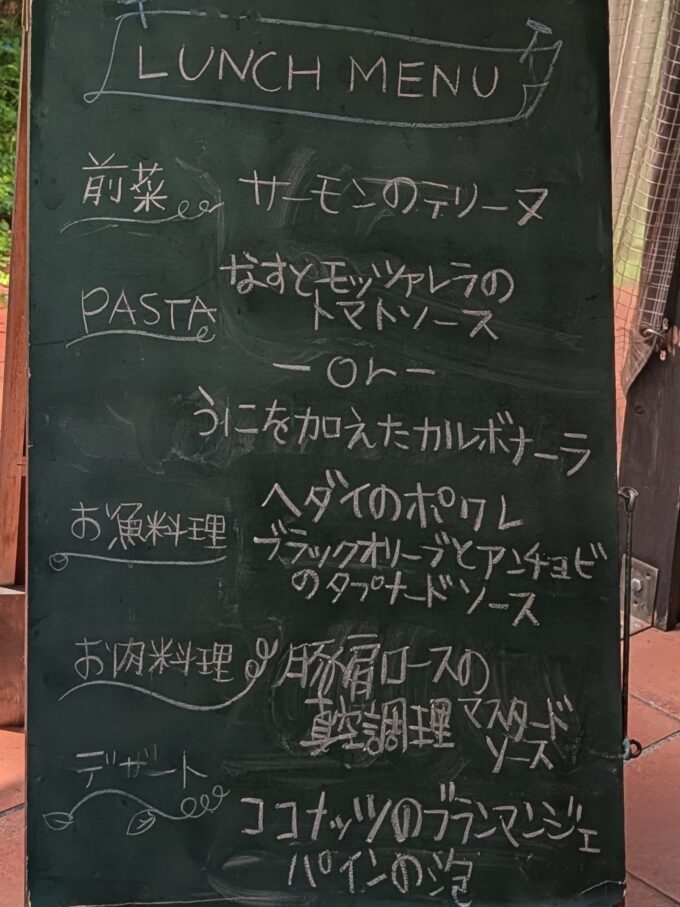 LUNCH MENU
前菜 サーモンのテリーヌ
PASTA なすとモッツァレラの
トマトソース
ー or ー
うにを加えたカルボナーラ
お魚料理 ヘダイのポワレ
ブラックオリーブとアンチョビ
のタプナードソース
お肉料理 豚肩ロースの
真空調理 マスタード
ソース
デザート
ココナッツのブランマンジェ
パインの泡